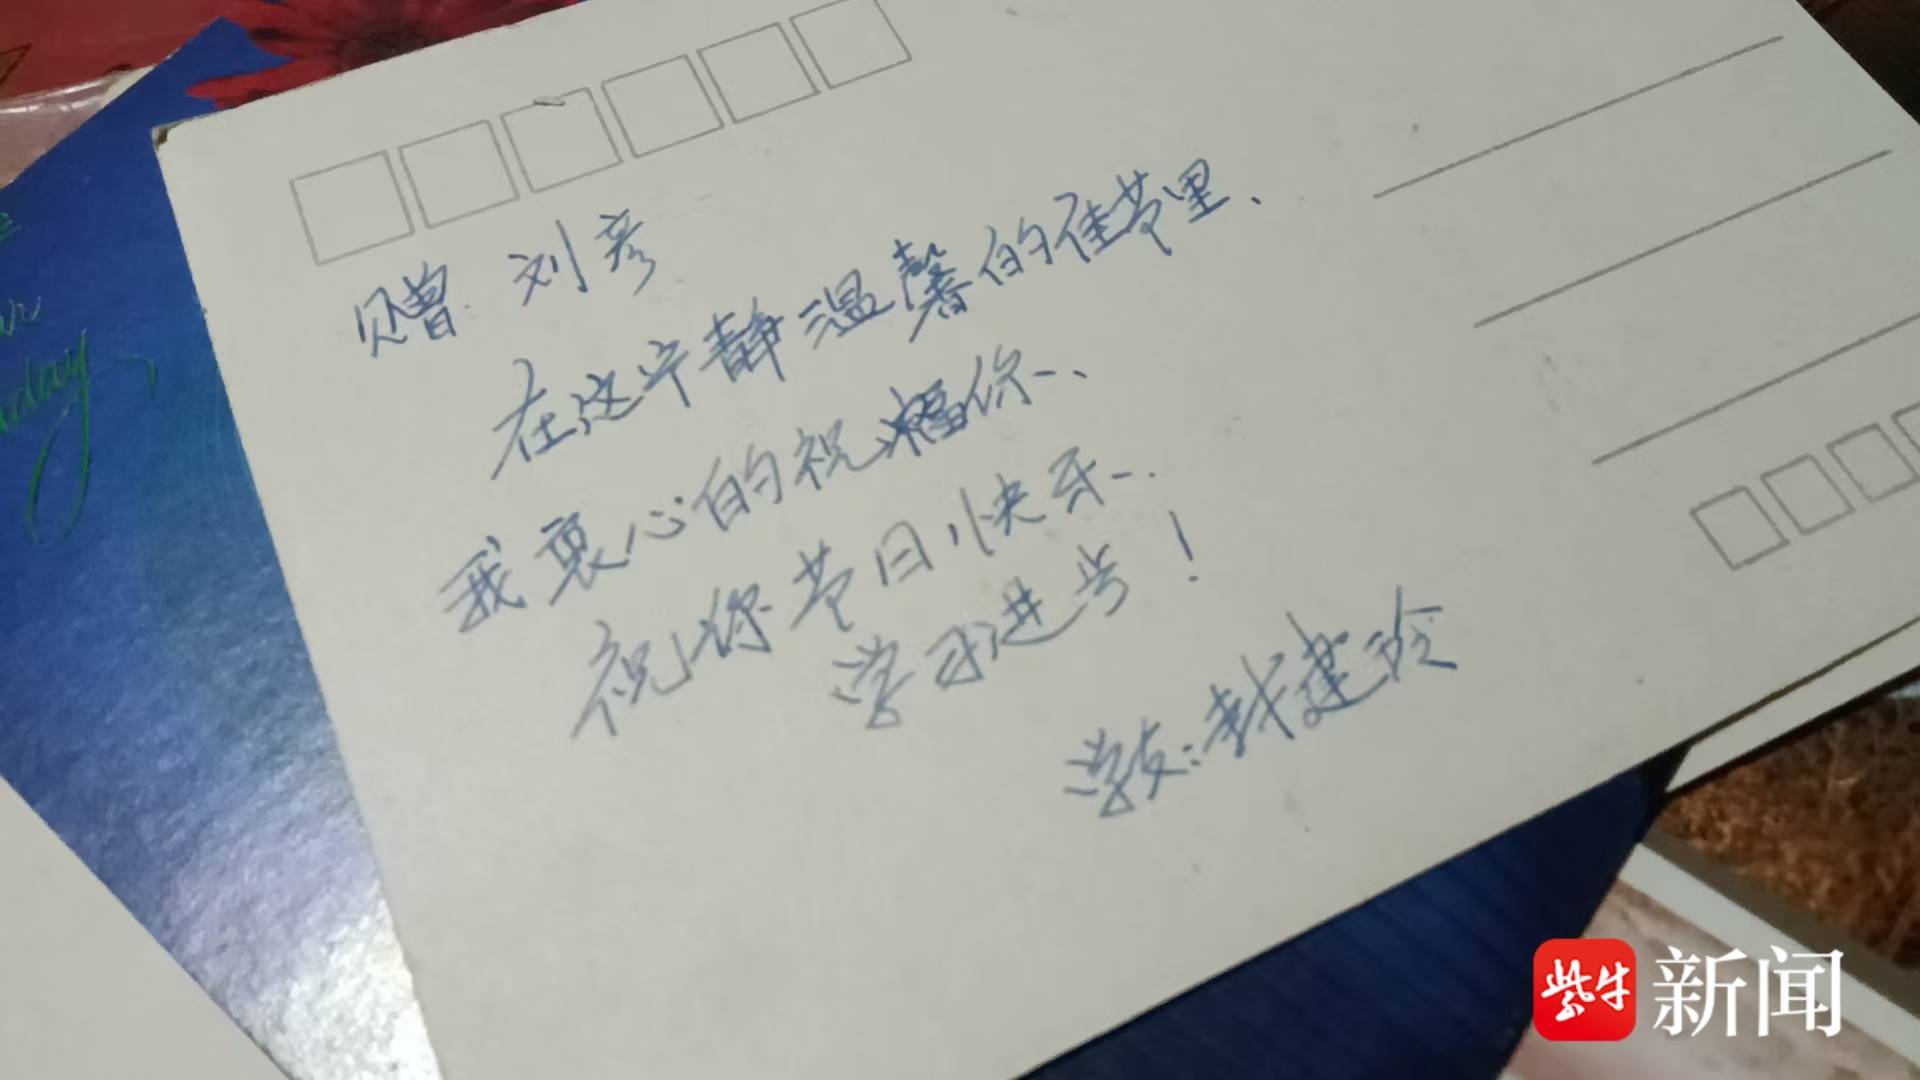 赠 刘彦
在这宁静温馨的佳节里、
我衷心的祝福你…
祝你节日快乐…
学习进步！
学友：建玲
day
紫牛 新闻